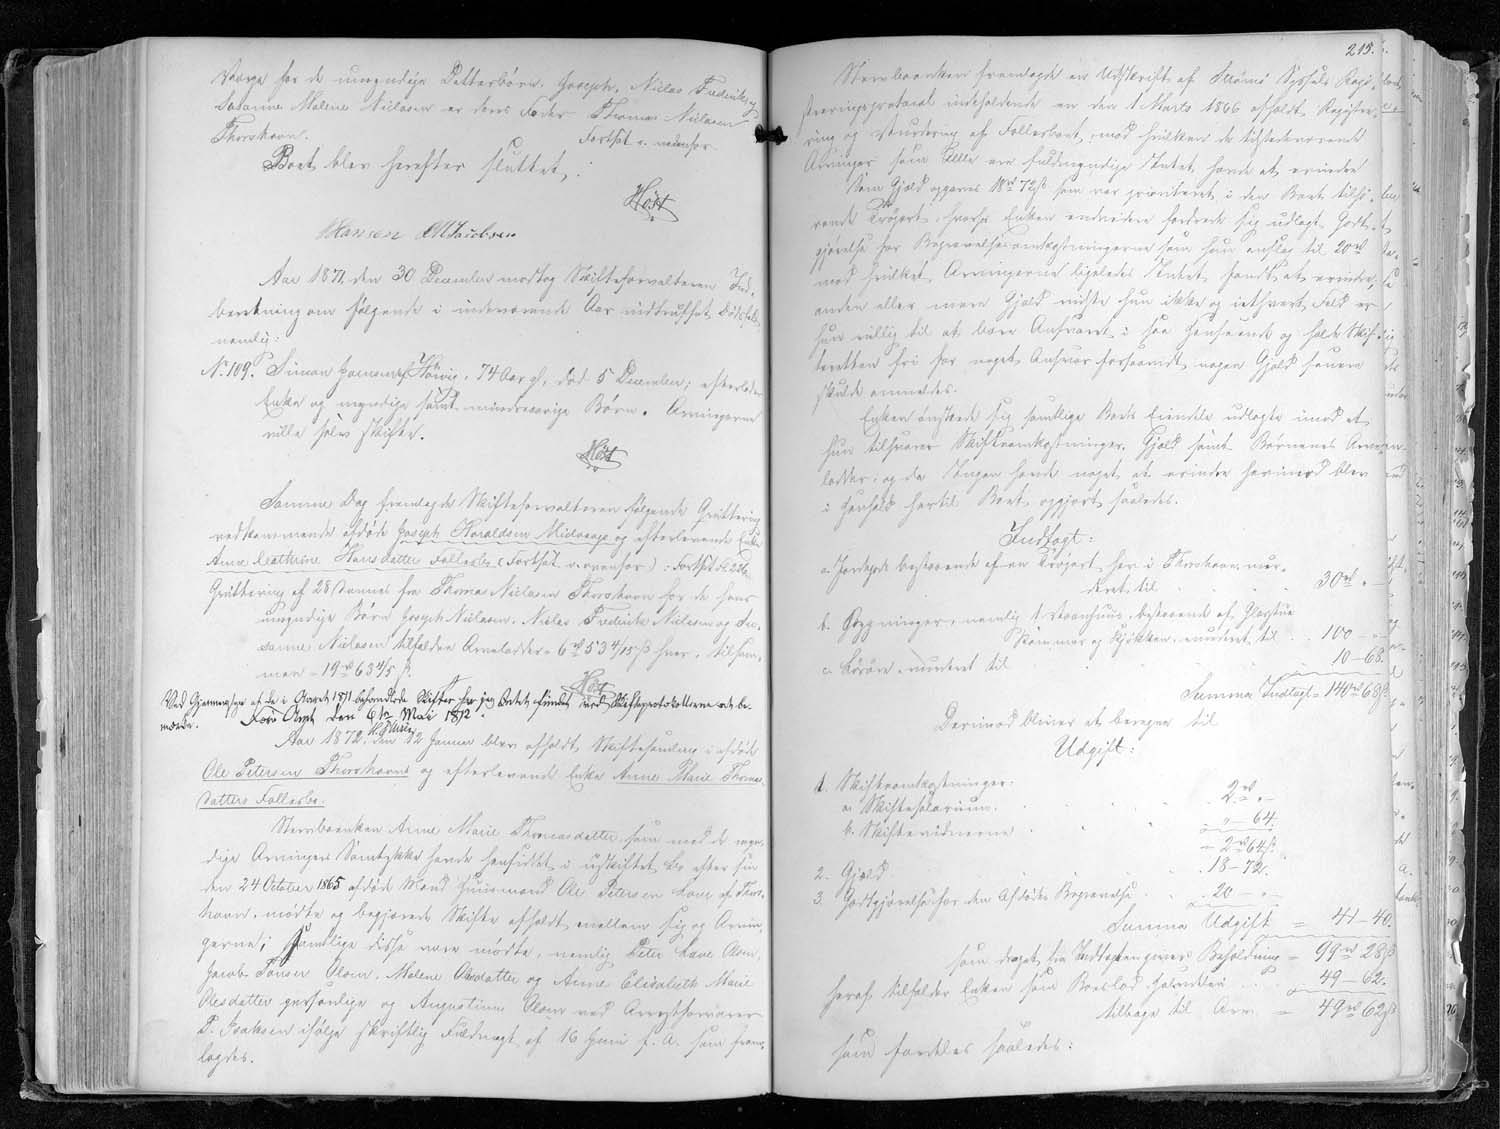 Værge for de umyndige Dattersbørn, Joseph, Niclas Frederik og
Susanne Malene Niclasen er deres Fader Thomas Niclasen
Thorshavn.
Fortsat v. nedenfor.
Boet blev herefter sluttet.
Høst
Hansen MJacobsen
Aar 1871, den 30 December modtog Skifteforvalteren Ind-
beretning om følgende i indeværende Aar indtrufne Dødsfald,
nemlig:
No 109. Simon Høivig, 74 Aar gl, død 5 December; efterlader
Enke og myndige samt mindreaarige Børn. Arvingerne
ville selv skifte.
Høst
Samme Dag fremlagde Skifteforvalteren følgende Qvittering
vedkommende afdøde Joseph Haraldsen Midvaag og efterlevende Enke
Anne Cathrine Hansdatter Follesbø (Fortsat v. ovenfor): Fortsat
Qvittering af 28 dennes fra Thomas Niclasen Thorshavn for de hans
umyndige Børn Joseph Niclasen, Niclas Frederik Niclasen og Su-
sanne Niclasen tilfaldne Arvelodder 6 rd 53 4/15 ß hver, tilsam-
men 19 rd 63 4/5 ß.
Høst
Ved Gjennemsyn af de i Aaret 1871 behandlede Skifter har jeg Intet fundet ved Skifteprotokollerne at be-
mærke.
Færø Amt den 6te Mai 1872.
Aar 1872 den 12 Januar blev afholdt Skiftesamling i afdøde
Ole Petersen Thorshavns og efterlevende Enke Anne Marie Thomas-
datters Fællesbo.
Stervboenken Anne Marie Thomasdatter som med de myn-
dige Arvingers Samtykke havde hensiddet i uskiftet Bo efter sin
den 24 October 1865 afdøde Mand Huusmand Ole Petersen Lave af Thors-
havn, mødte og begjærede Skifte afholdt mellem sig og Arvin-
gerne; samtlige disse vare mødte, nemlig Peter Lave Olsen,
Jacob Olsen, Malene Olesdatter og Anne Elisabeth Marie
Olesdatter personlige og Augustinus Olsen ved Arrestforvarer
P. Isaksen ifølge skriftlig Fuldmagt af 16 Juni f. A. som frem-
lagdes.
215.
Stervboenken fremlagde en Udskrift af Strømø Syssels Regi-
streringsprotocol indeholdende en den 1 Marts 1866 afholdt Registre-
ring og Vurdering af Fællesboet, mod hvilken de tilstedeværende
Arvinger som Alle ere fuldmyndige Intet havde at erindre
Som Gjæld opgaves 18 rd 72 ß som var prioriteret i den Boet tilhø-
rende Trøjørt, hvorhos Enken endvidere fordrede sig udlagt Godt-
gjørelse for Begravelsesomkostningerne som hun anslog til 20 rd
mod hvilket Arvingerne ligeledes Intet havde at erindre;
anden eller mere Gjæld vidste hun ikke og i ethvert Fald er
hun villig til at bære Ansvaret i saa Henseende og holde Skif-
teretten fri for noget Ansvar forsaavidt nogen Gjæld senere
skulde anmeldes.
Enken ønskede sig samtlige Boets Eiendele udlagte imod at
hun tilsvarer Skifteomkostninger, Gjæld samt Børnenes Arve-
lodder; og da Ingen havde noget at erindre herimod blev
i Henhold hertil Boet opgjort saaledes.
Indtægt:
a. Jordgods bestaaende af en Trøjørt her i Thorshavn, vur-
deret til . . . 30 rd " –
b. Bygninger, nemlig 1 Vaanhuus bestaaende af Glasstue
Kammer og Kjøkken, vurderet til . . 100 – " –
c. Løsøre vurderet til 10 – 68.
Summa Indtægt = 140 rd 68 ß
Derimod bliver at beregne til
Udgift:
1. Skifteomkostninger:
a. Skiftesalarium . . . 2 rd " –
b. Skiftevidnerne . . " – 64.
= 2 rd 64 ß
2. Gjæld . . . 18 – 72.
3. Godtgjørelse for den Afdødes Begravelse . 20 – " –
Summa Udgift = 41 – 40.
som draget fra Indtægten giver Beholdning = 99 rd 28 ß
heraf tilfalder Enken som Boeslod Halvdelen . . 49 – 62.
tilbage til Arv = 49 rd 62 ß
som fordeles saaledes: